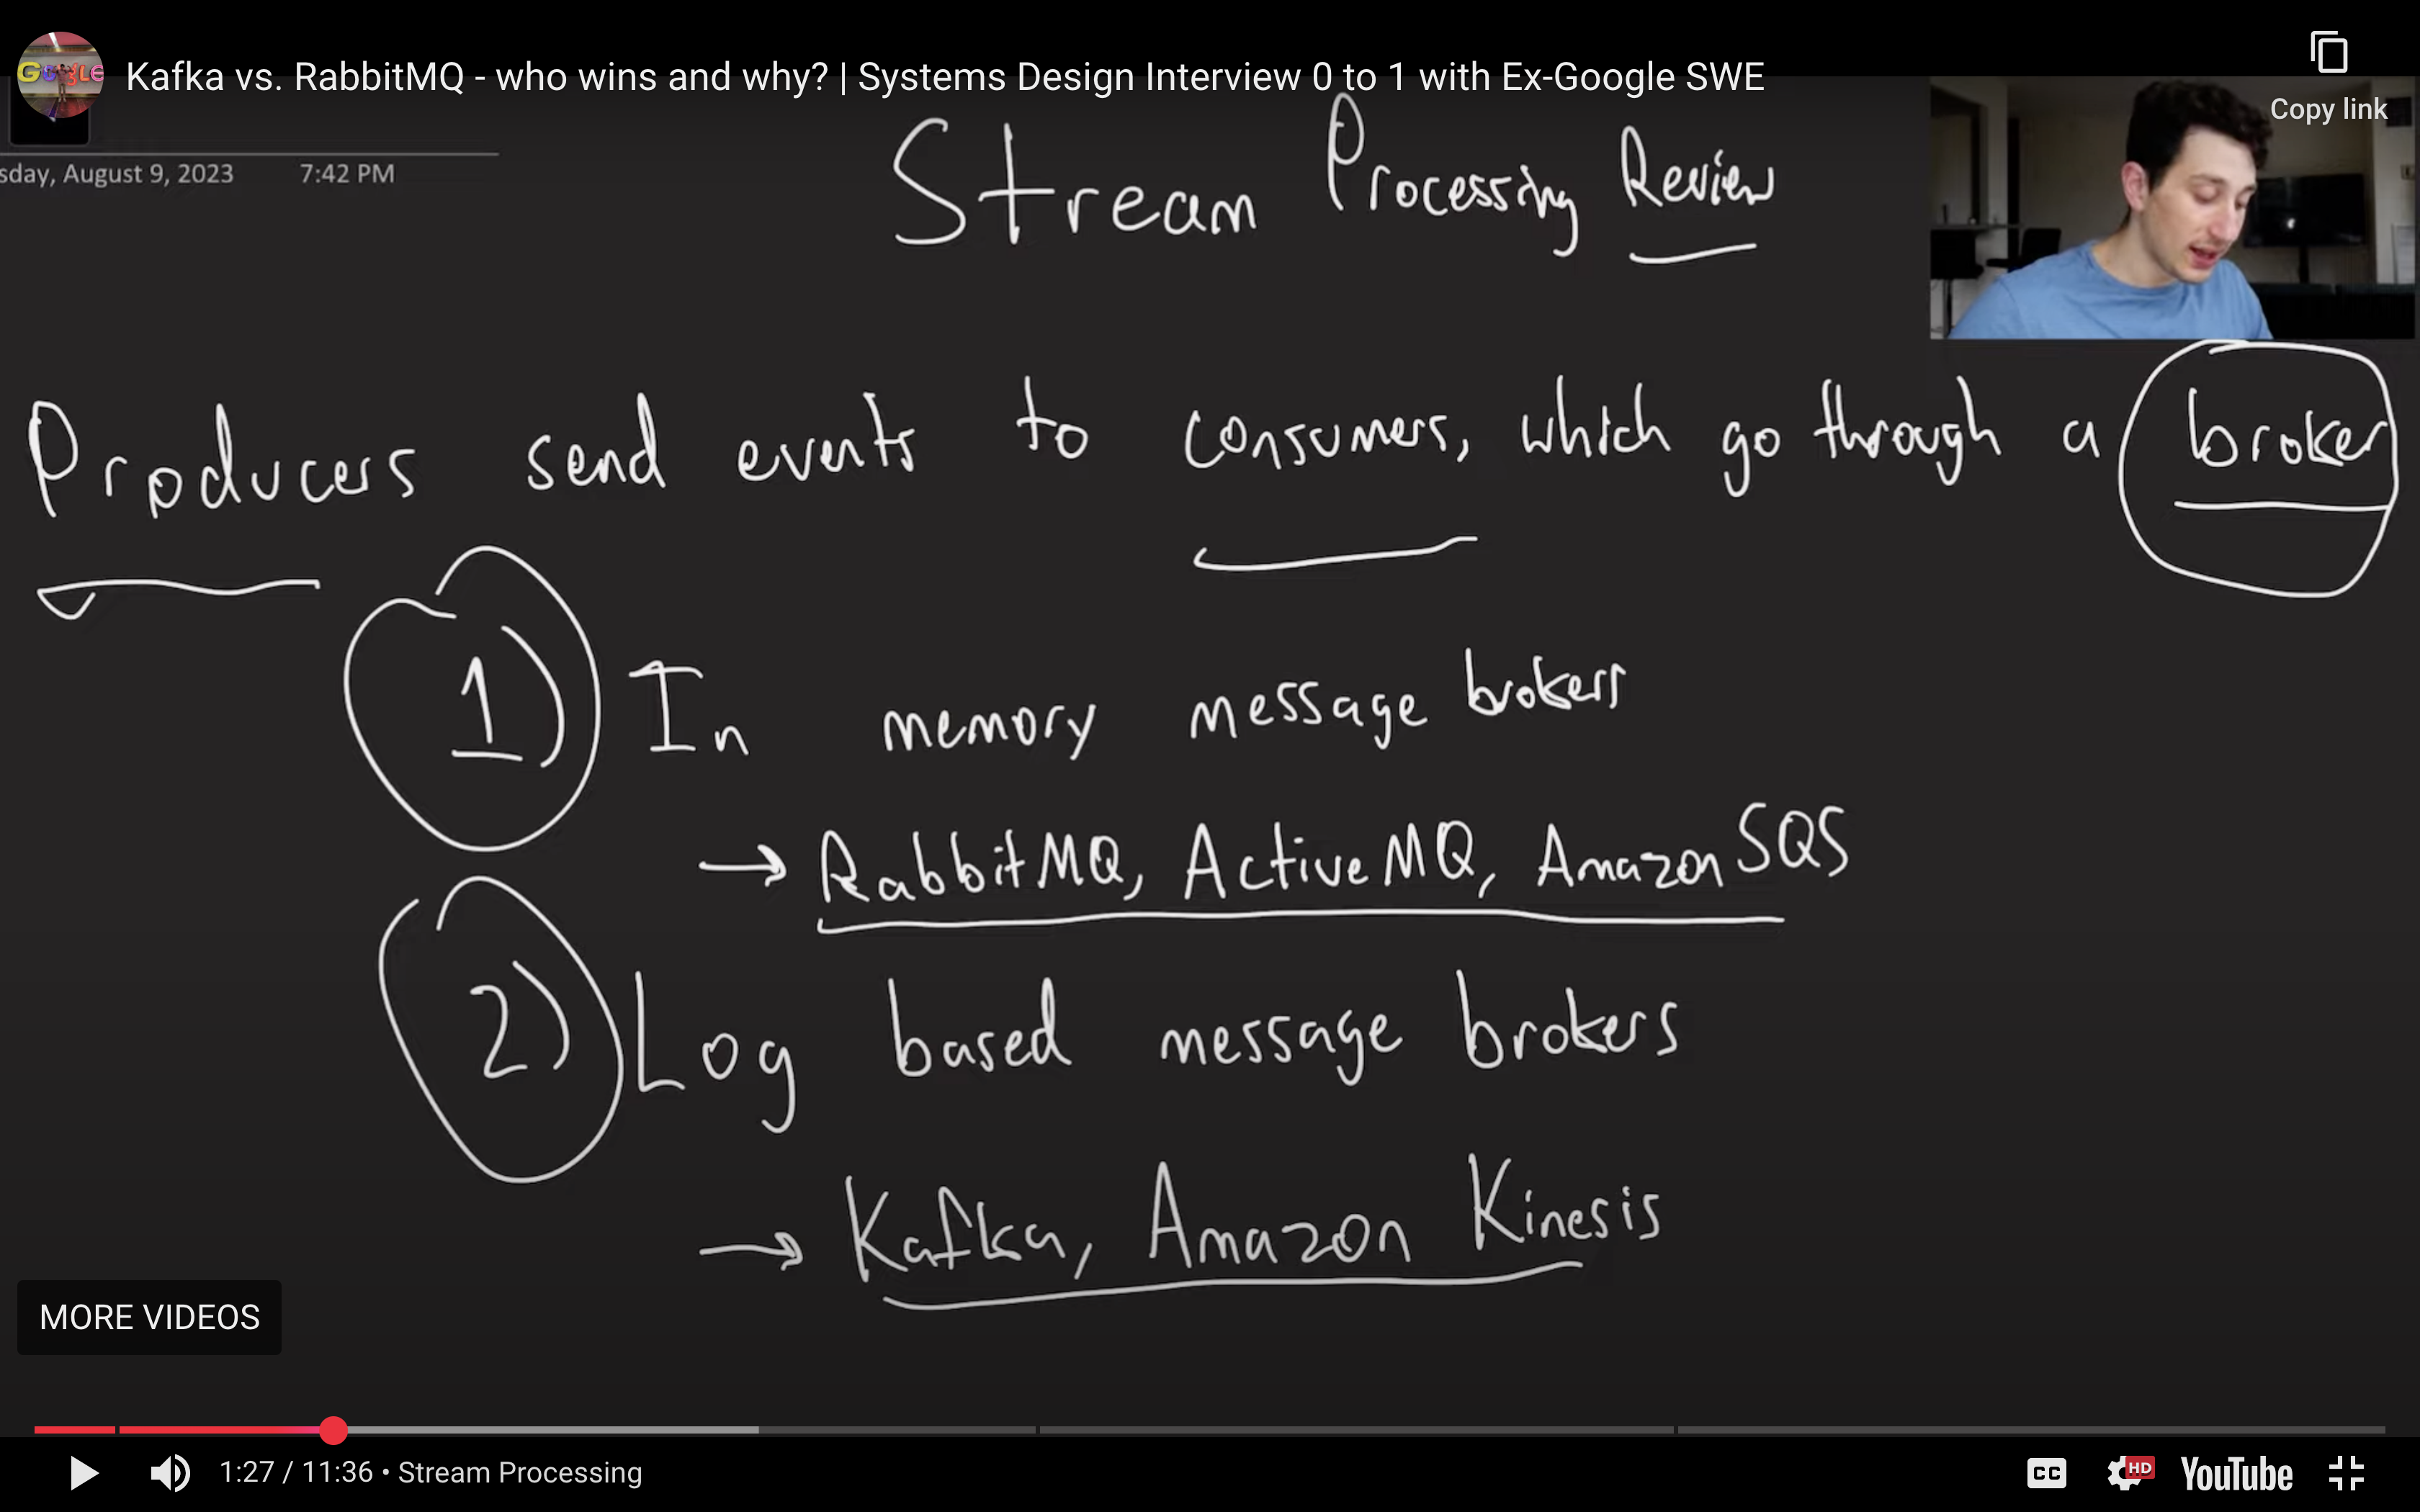 GOOGLE
Kafka vs. RabbitMQ - who wins and why? | Systems Design Interview 0 to 1 with Ex-Google SWE
Copy link
sday, August 9, 2023 7:42 PM
Stream Processing Review
Producers send events to consumers, which go through a broker
1) In memory message brokers
→ RabbitMQ, ActiveMQ, Amazon SQS
2) Log based message brokers
→ Kafka, Amazon Kinesis
MORE VIDEOS
1:27 / 11:36 • Stream Processing
CC HD YouTube